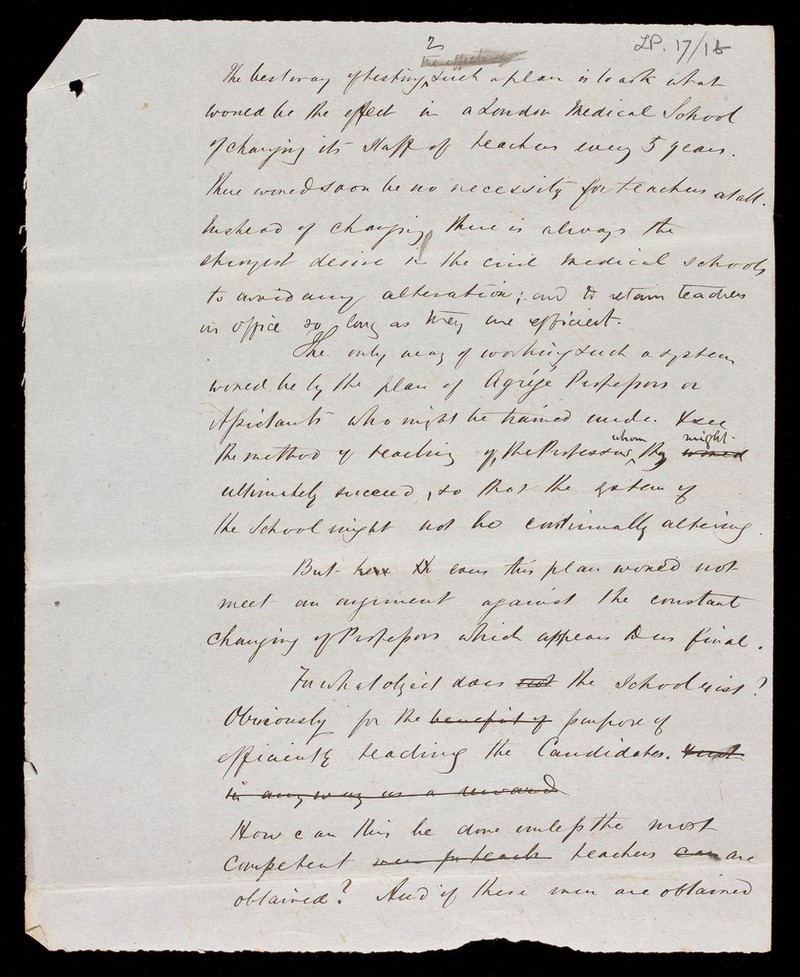 LP. 17/15
2
the effects of
The best way of testing such a plan is to ask what
would be the effect in a London Medical School
of changing its staff of teachers every 5 years.
There would soon be no necessity for teachers at all.
Instead of changing, there is always the
strongest desire in the civil medical schools
to avoid any alteration; and to retain teachers
in office so long as they are efficient.
The only way of working such a system
would be by the plan of Agrége Professors or
Assistants who might be trained under & see
the method of teaching of, the Professors whom they would might
ultimately succeed, so that the system of
the School might not be continually altering.
But even this plan would not
meet an argument against the constant
changing of Professors which appears to us final.
For what object does not the School exist?
Obviously for the benefit of purpose of
efficiently teaching the Candidates. & not
in any way as a reward
How can this be done unless the most
competent men to teach teachers can are
obtained? And if these men are obtained